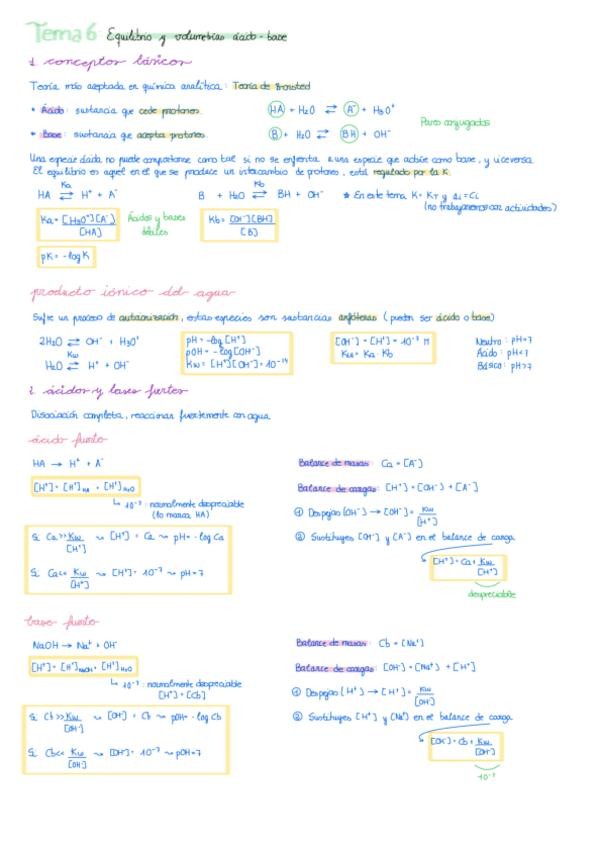 Tema 6: Equilibrio y volumetrías ácido-base
1. conceptos básicos
Teoría más aceptada en química analítica: Teoría de Bronsted
• Ácido: sustancia que cede protones. HA + H2O ⇄ A⁻ + H3O⁺
Pares conjugados
• Base: sustancia que acepta protones. B + H2O ⇄ BH + OH⁻
Una especie ácida no puede comportarse como tal si no se enfrenta a una especie que actúe como base, y viceversa.
El equilibrio es aquel en el que se produce un intercambio de protones, está regulado por la K.
HA ⇄ H⁺ + A⁻ Ka B + H2O ⇄ BH + OH⁻ Kb * En este tema K = KT y ai = Ci
(no trabajaremos con actividades)
Ka = [H3O⁺][A⁻] / [HA] Ácidos y bases débiles Kb = [OH⁻][BH] / [B]
pK = -log K
producto iónico del agua
Sufre un proceso de autoionización, estas especies son sustancias anfóteras (pueden ser ácido o base)
2H2O ⇄ OH⁻ + H3O⁺ pH = -log [H⁺] [OH⁻] = [H⁺] = 10⁻⁷ M Neutro: pH=7
pOH = -log [OH⁻] Kw = Ka · Kb Ácido: pH<7
H2O ⇄ H⁺ + OH⁻ Kw Kw = [H⁺][OH⁻] = 10⁻¹⁴ Básico: pH>7
2. ácidos y bases fuertes
Disociación completa, reaccionan fuertemente con agua.
ácido fuerte
HA → H⁺ + A⁻ Balance de masas: Ca = [A⁻]
[H⁺] = [H⁺]HA + [H⁺]H2O Balance de cargas: [H⁺] = [OH⁻] + [A⁻]
↳ 10⁻⁷: normalmente despreciable
(lo marca HA)
① Despejas [OH⁻] → [OH⁻] = Kw / [H⁺]
Si Ca >> Kw / [H⁺] ⇝ [H⁺] = Ca ⇝ pH = -log Ca ② Sustituyes [OH⁻] y [A⁻] en el balance de carga
Si Ca << Kw / [H⁺] ⇝ [H⁺] = 10⁻⁷ ⇝ pH = 7 [H⁺] = Ca + Kw / [H⁺]
despreciable
base fuerte
NaOH → Na⁺ + OH⁻ Balance de masas: Cb = [Na⁺]
[H⁺] = [H⁺]NaOH + [H⁺]H2O Balance de cargas: [OH⁻] = [Na⁺] + [H⁺]
↳ 10⁻⁷: normalmente despreciable
[H⁺] = [Cb]
① Despejas [H⁺] → [H⁺] = Kw / [OH⁻]
Si Cb >> Kw / [OH⁻] ⇝ [OH⁻] = Cb ⇝ pOH = -log Cb ② Sustituyes [H⁺] y [Na⁺] en el balance de carga
Si Cb << Kw / [OH⁻] ⇝ [OH⁻] = 10⁻⁷ ⇝ pOH = 7 [OH⁻] = Cb + Kw / [OH⁻]
10⁻⁷